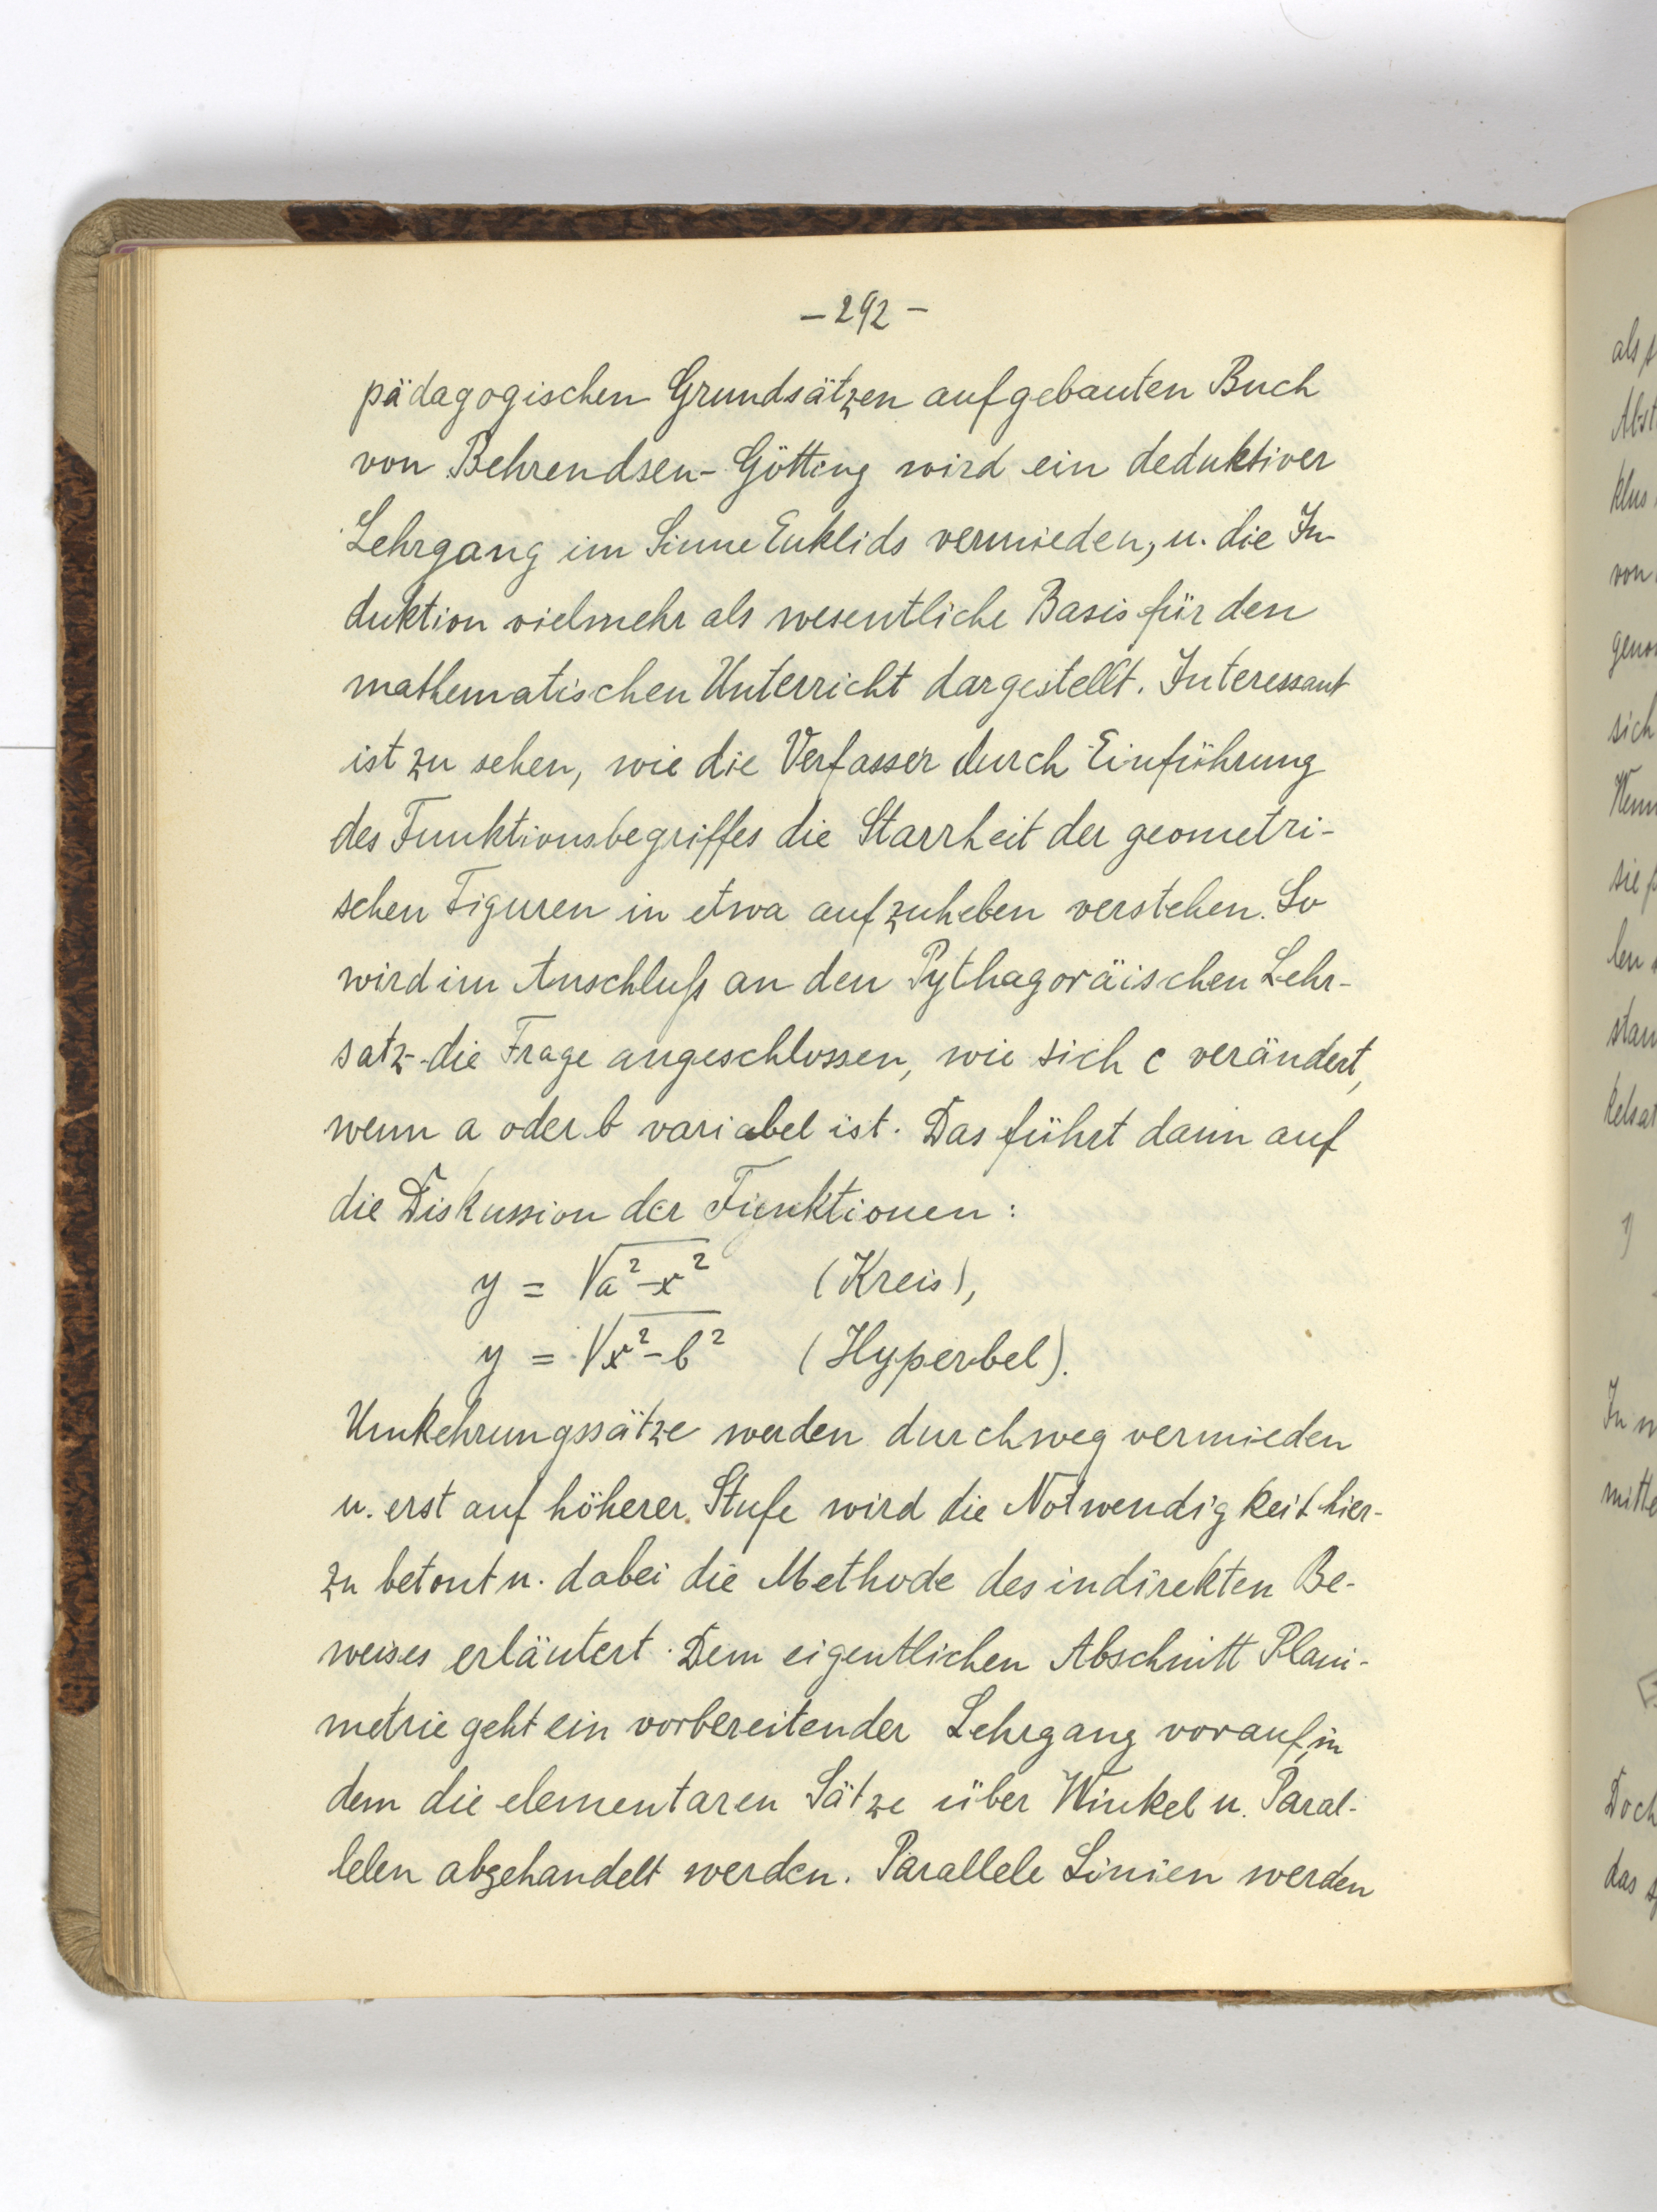 – 292 –
pädagogischen Grundsätzen aufgebauten Buch
von Behrendsen-Götting wird ein deduktiver
Lehrgang im Sinne Euklids vermieden, u. die In-
duktion vielmehr als wesentliche Basis für den
mathematischen Unterricht dargestellt. Interessant
ist zu sehen, wie die Verfasser durch Einführung
des Funktionsbegriffes die Starrheit der geometri-
schen Figuren in etwa aufzuheben verstehen. So
wird im Anschluß an den Pythagoräischen Lehr-
satz die Frage angeschlossen, wie sich c verändert,
wenn a oder b variabel ist. Das führt dann auf
die Diskussion der Funktionen:
y = √a²–x² (Kreis),
y = √x²–b² (Hyperbel).
Umkehrungssätze werden durchweg vermieden
u. erst auf höherer Stufe wird die Notwendigkeit hier-
zu betont u. dabei die Methode des indirekten Be-
weises erläutert. Dem eigentlichen Abschnitt Plani-
metrie geht ein vorbereitender Lehrgang vorauf, in
dem die elementaren Sätze über Winkel u. Paral-
lelen abgehandelt werden. Parallele Linien werden
als
von
sich
Wenn
1)
Doch
das